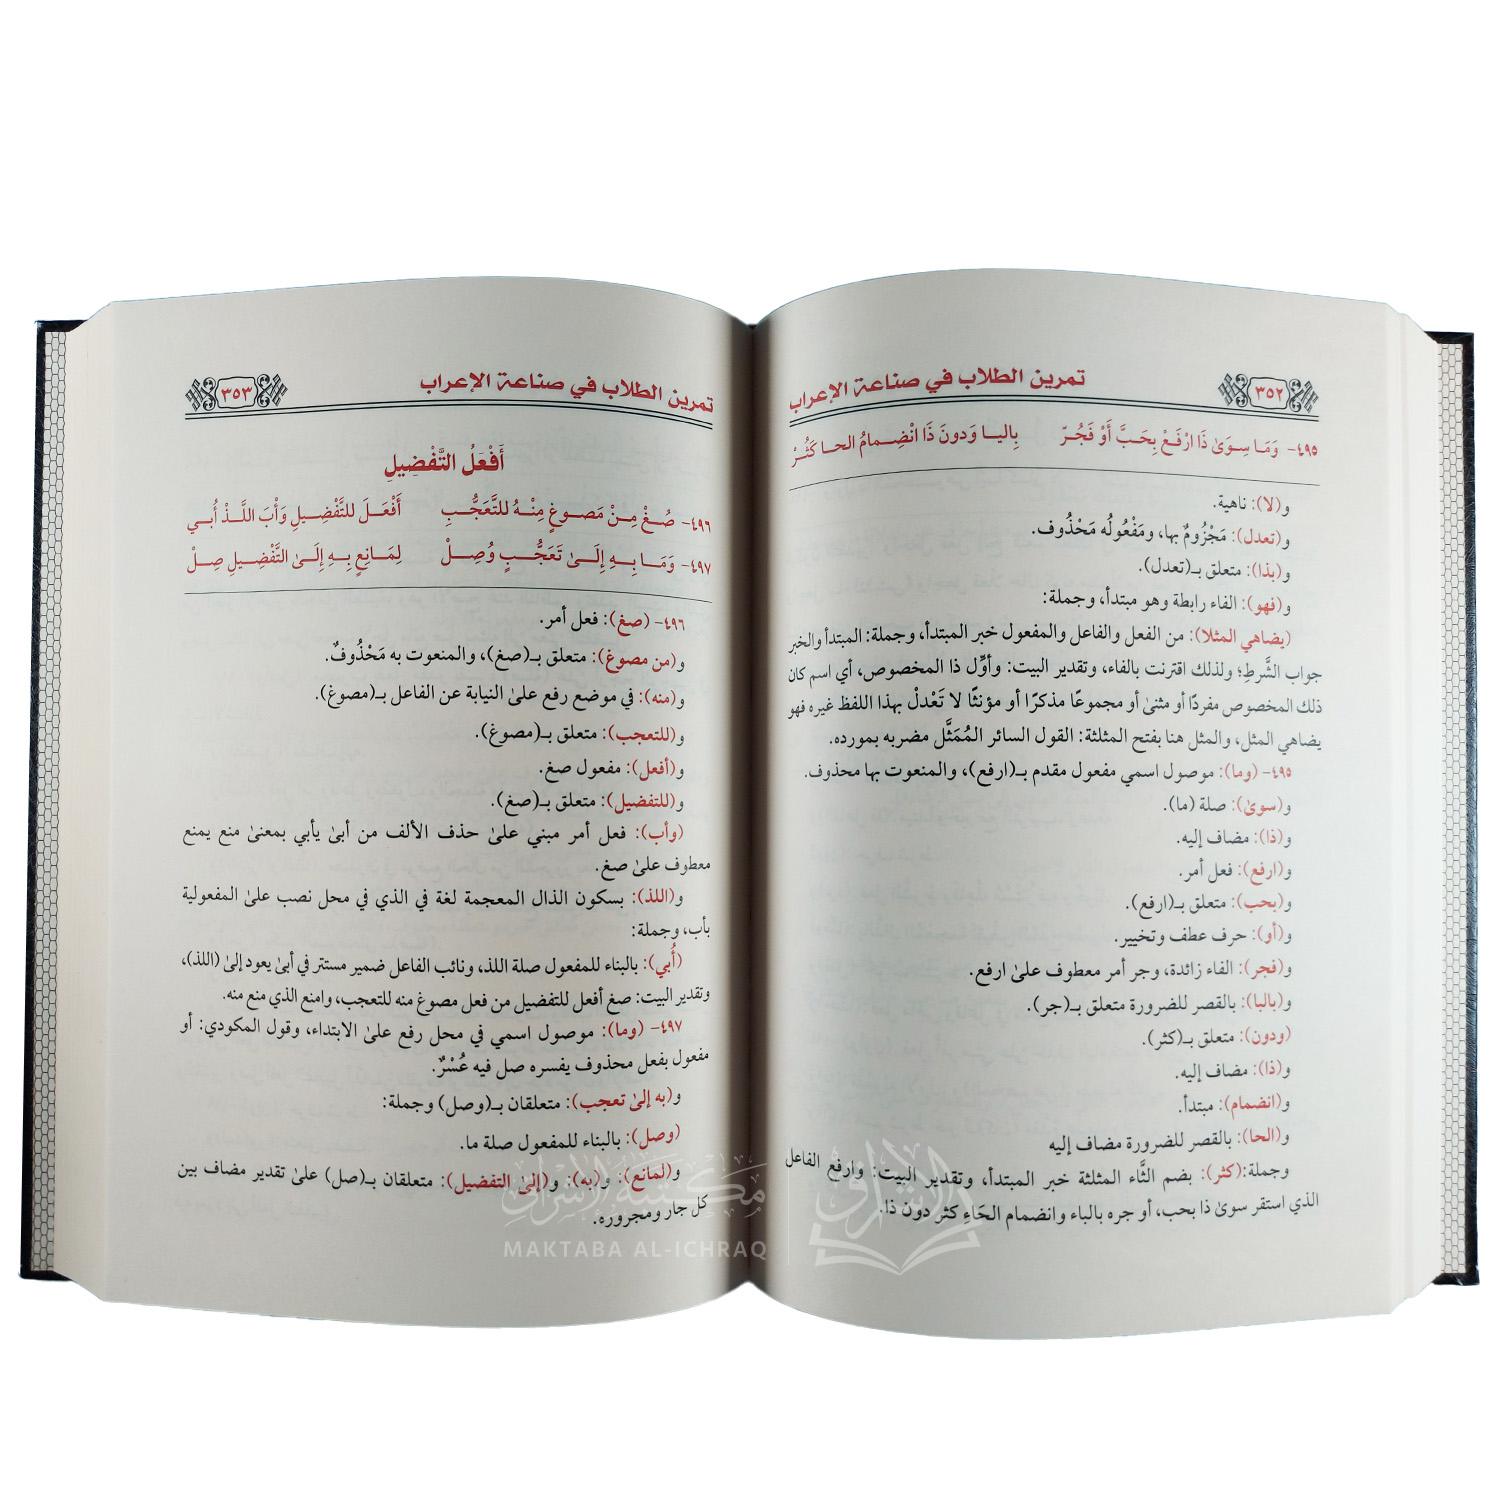 تمرين الطلاب في صناعة الإعراب
٣٥٢
٤٩٥- وَمَا سِوَىٰ ذَا ارْفَعْ بِحَبَّ أَوْ فَجُرّ بِاليـا وَدونَ ذَا انْضِمامُ الحـا كَثُـرْ
و(لا): ناهية.
و(تعدل): مَجْزُومٌ بها، ومَفْعُولُه مَحْذُوف.
و(بذا): متعلق بـ(تعدل).
و(فهو): الفاء رابطة وهو مبتدأ، وجملة:
(يضاهي المثلا): من الفعل والفاعل والمفعول خبر المبتدأ، وجملة: المبتدأ والخبر
جواب الشَّرطِ؛ ولذلك اقترنت بالفاء، وتقدير البيت: وأوِّل ذا المخصوص، أي اسم كان
ذلك المخصوص مفردًا أو مثنىٰ أو مجموعًا مذكرًا أو مؤنثًا لا تَعْدلْ بهذا اللفظ غيره فهو
يضاهي المثل، والمثل هنا بفتح المثلثة: القول السائر المُمَثَّل مضربه بمورده.
٤٩٥- (وما): موصول اسمي مفعول مقدم بـ(ارفع)، والمنعوت بها محذوف.
و(سوىٰ): صلة (ما).
و(ذا): مضاف إليه.
و(ارفع): فعل أمر.
و(بحب): متعلق بـ(ارفع).
و(أو): حرف عطف وتخيير.
و(فجر): الفاء زائدة، وجر أمر معطوف علىٰ ارفع.
و(باليا): بالقصر للضرورة متعلق بـ(جر).
(ودون): متعلق بـ(كثر).
و(ذا): مضاف إليه.
و(انضمام): مبتدأ.
و(الحا): بالقصر للضرورة مضاف إليه
وجملة:(كثر): بضم الثَّاء المثلثة خبر المبتدأ، وتقدير البيت: وارفع الفاعل
الذي استقر سوىٰ ذا بحب، أو جره بالباء وانضمام الحَاءِ كثر دون ذا.
تمرين الطلاب في صناعة الإعراب
٣٥٣
أَفْعَلُ التَّفْضِيلِ
٤٩٦- صُغْ مِـنْ مَصـوغٍ مِنْـهُ للتَّعَجُّـبِ أَفْعَـلَ للتَّفْضِيلِ وَأْبَ اللَّـذْ أُبـي
٤٩٧- وَمَـا بِـهِ إِلَـىٰ تَعَجُّـبٍ وُصِـلْ لِمَـانِعٍ بِـهِ إِلَـىٰ التَّفْضِيلِ صِـلْ
٤٩٦- (صغ): فعل أمر.
و(من مصوغ): متعلق بـ(صغ)، والمنعوت به مَحْذُوفٌ.
و(منه): في موضع رفع علىٰ النيابة عن الفاعل بـ(مصوغ).
و(للتعجب): متعلق بـ(مصوغ).
و(أفعل): مفعول صغ.
و(للتفضيل): متعلق بـ(صغ).
(وأب): فعل أمر مبني علىٰ حذف الألف من أبىٰ يأبي بمعنىٰ منع يمنع
معطوف علىٰ صغ.
و(اللذ): بسكون الذال المعجمة لغة في الذي في محل نصب علىٰ المفعولية
بأب، وجملة:
(أُبي): بالبناء للمفعول صلة اللذ، ونائب الفاعل ضمير مستتر في أبىٰ يعود إلىٰ (اللذ)،
وتقدير البيت: صغ أفعل للتفضيل من فعل مصوغ منه للتعجب، وامنع الذي منع منه.
٤٩٧- (وما): موصول اسمي في محل رفع علىٰ الابتداء، وقول المكودي: أو
مفعول بفعل محذوف يفسره صل فيه عُسْرٌ.
و(به إلىٰ تعجب): متعلقان بـ(وصل) وجملة:
(وصل): بالبناء للمفعول صلة ما.
و(لمانع): و(به): و(إلىٰ التفضيل): متعلقان بـ(صل) علىٰ تقدير مضاف بين
كل جار ومجروره.
مكتبة الإشراق
MAKTABA AL-ICHRAQ
الإشراق